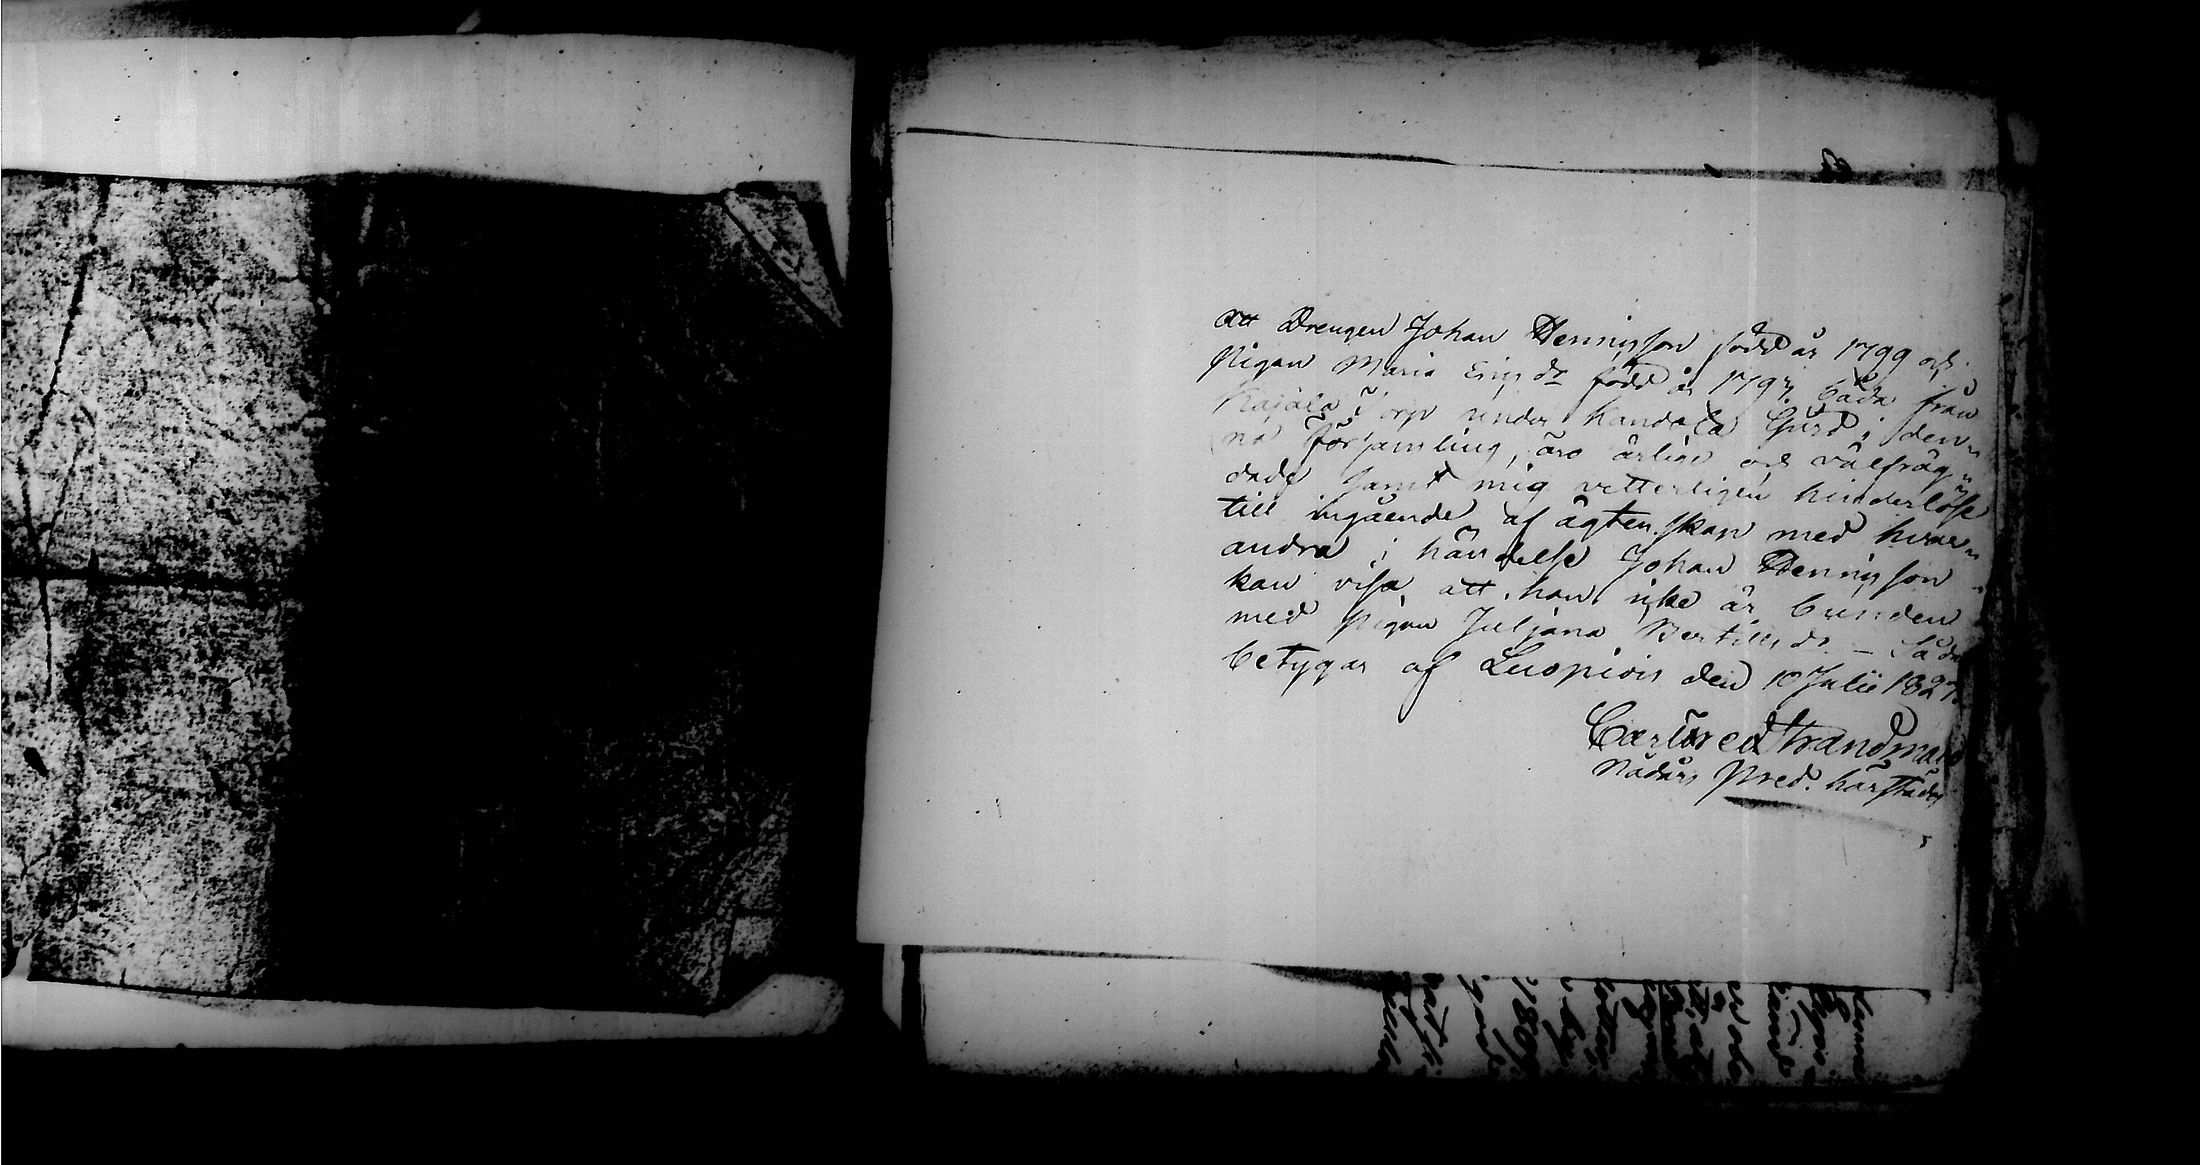 att Drengen Johan Hennigsson född år 1799 och
Pigan Maria Erichs dr född år 1797, båda från
Kajala Torp under Kandola Gård i den-
na Församling, äro ärlige och välfräg-
dade samt mig vetterligen hinderlöse
till ingående af ägtenskap med hvar-
andra, i händelse Johan Hennigsson
kan visa, att han icke är bunden
med Pigan Juljana Bertills dr — Såda
betygar af Luopiois den 10 Julii 1827
Carl Strandman
Nådårs Pred. härstädes